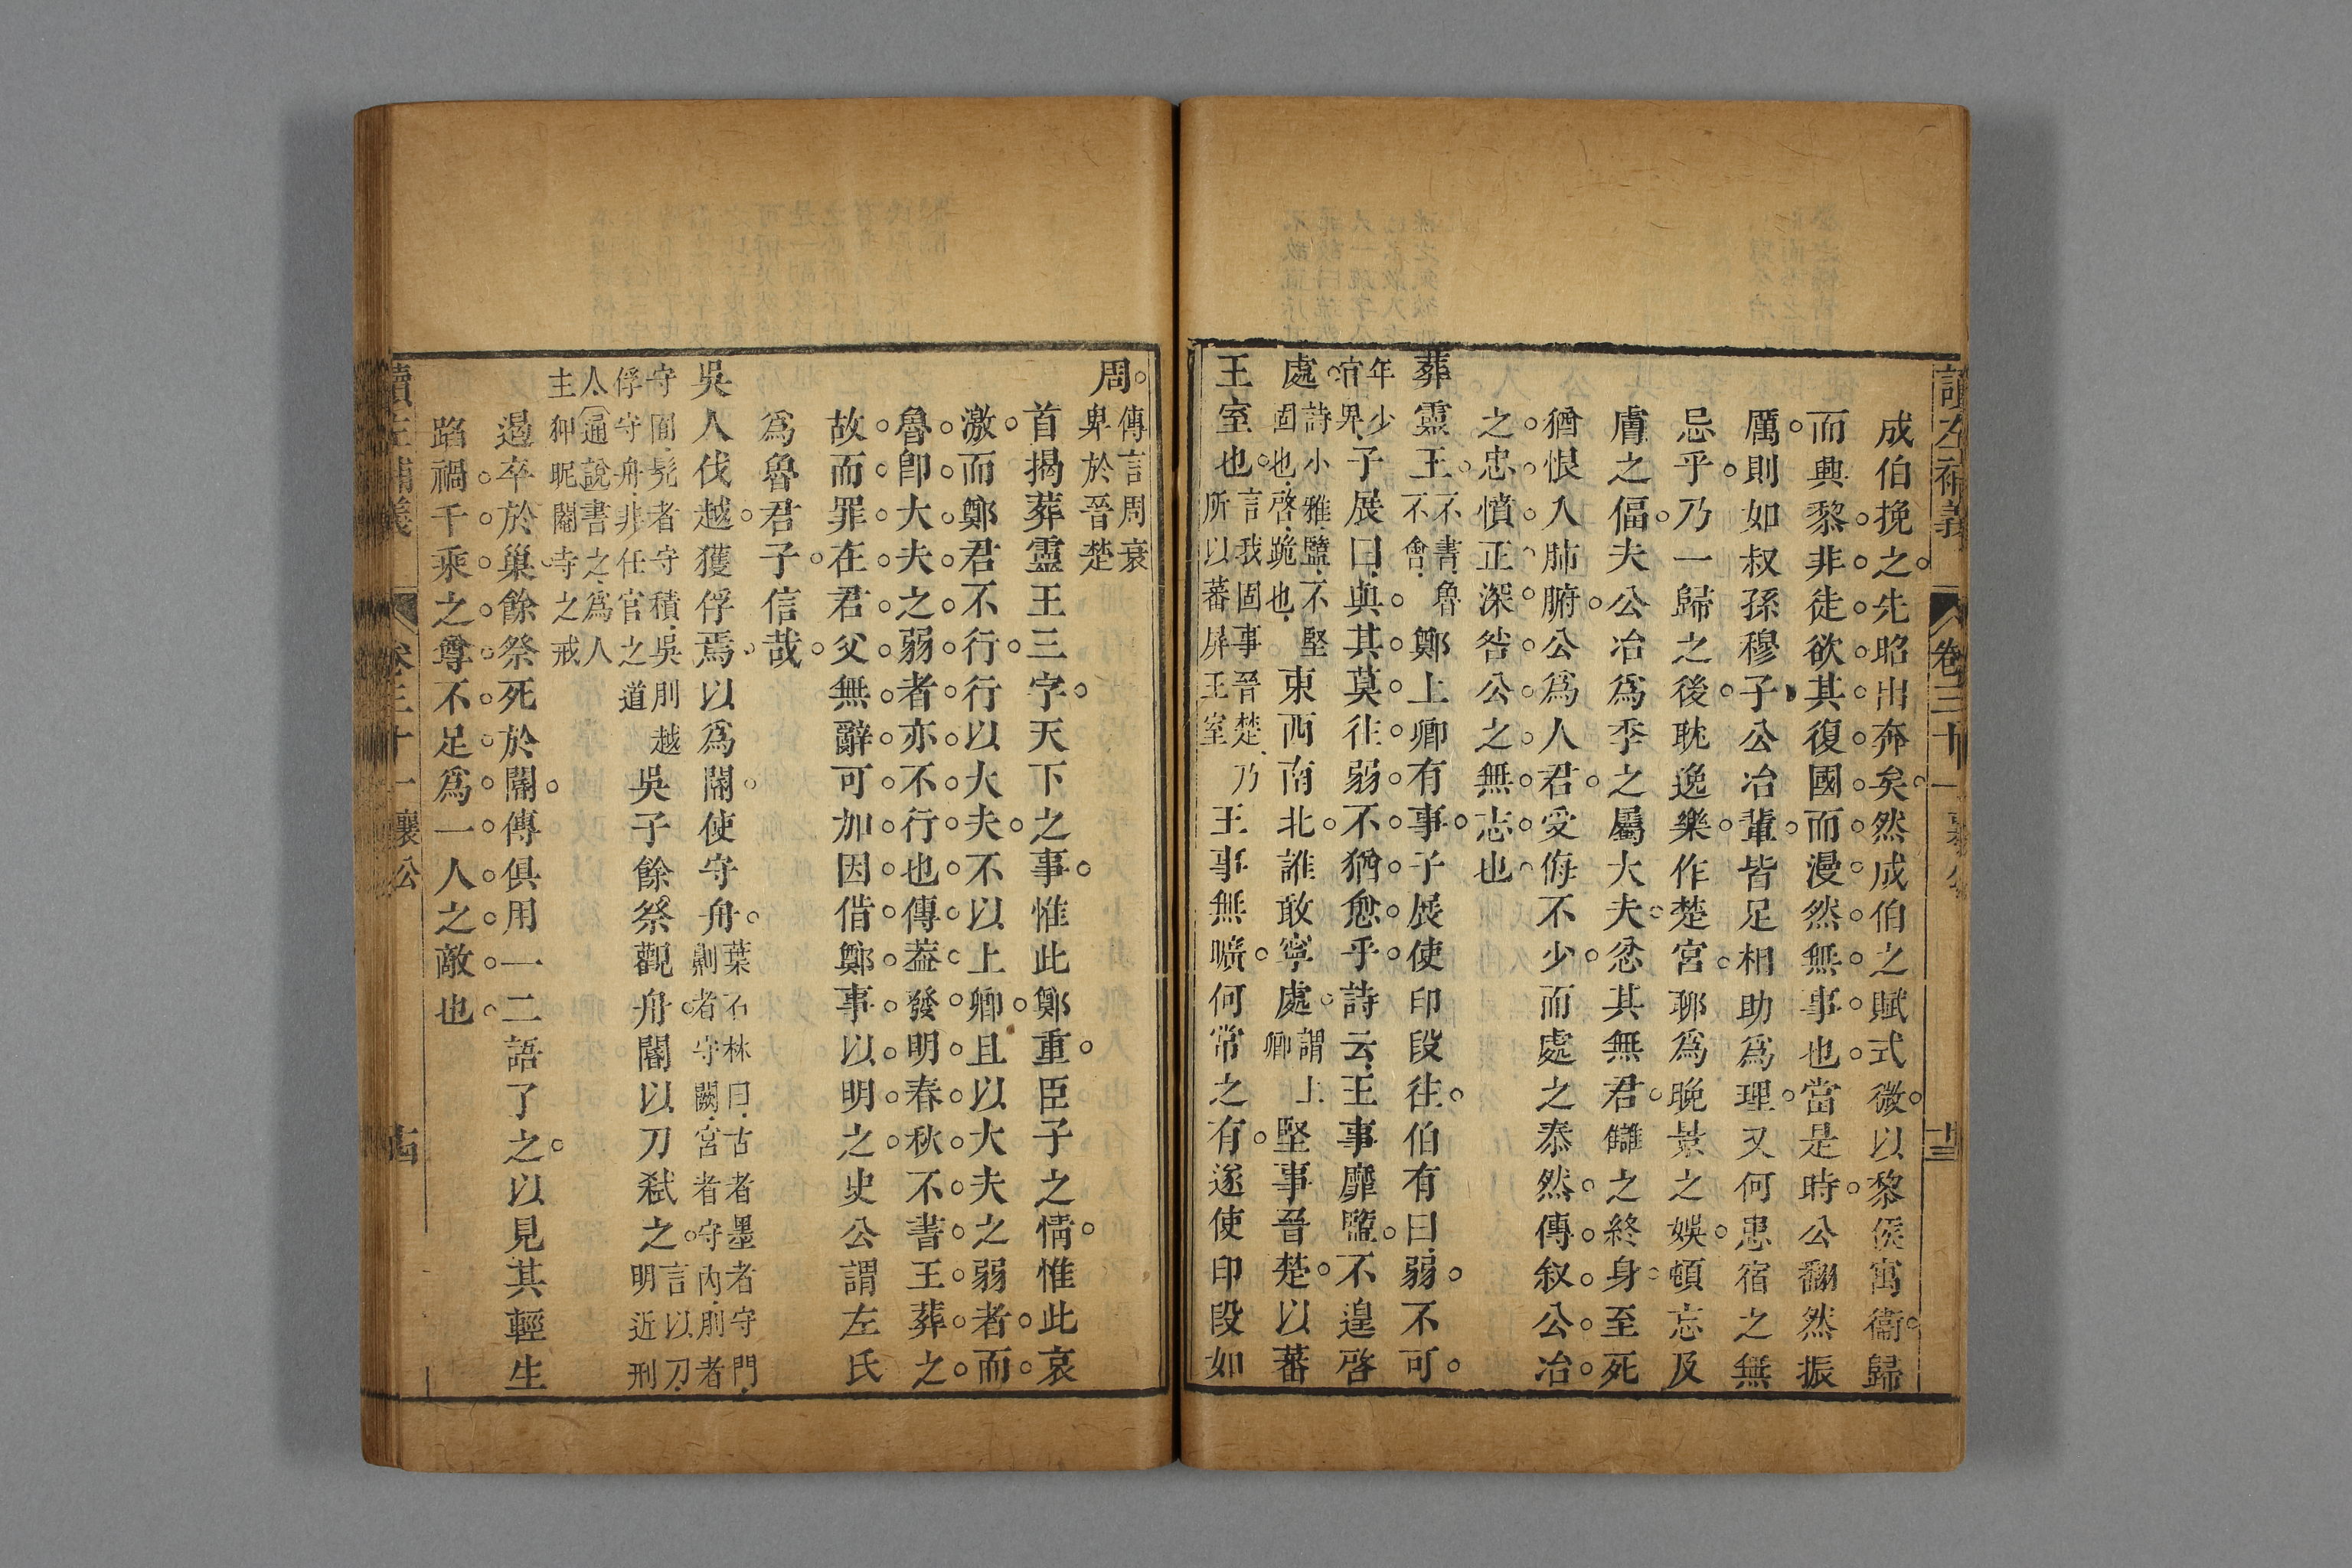 讀左補義 卷三十一 襄公 十三
成伯挽之先昭出奔矣然成伯之賦式微以黎侯寓衞歸
而興黎非徒欲其復國而漫然無事也當是時公翻然振
厲則如叔孫穆子公冶輩皆足相助為理又何患宿之無
忌乎乃一歸之後耽逸樂作楚宮聊為晚景之娛頓忘及
膚之偪夫公冶為季之屬大夫忿其無君讎之終身至死
猶恨入肺腑公為人君受侮不少而處之泰然傳叙公冶
之忠憤正深咎公之無志也
葬靈王不書魯不會鄭上卿有事子展使印段往伯有曰弱不可
年少官畀子展曰與其莫往弱不猶愈乎詩云王事靡盬不遑啓
處詩小雅盬不堅固也啓跪也東西南北誰敢寧處謂上卿堅事晉楚以蕃
王室也言我固事晉楚乃所以蕃屏王室王事無曠何常之有遂使印段如
周傳言周衰卑於晉楚
首揭葬靈王三字天下之事惟此鄭重臣子之情惟此哀
激而鄭君不行行以大夫不以上卿且以大夫之弱者而
魯卽大夫之弱者亦不行也傳葢發明春秋不書王葬之
故而罪在君父無辭可加因借鄭事以明之史公謂左氏
為魯君子信哉
吳人伐越獲俘焉以為閽使守舟葉石林曰古者墨者守門劓者守關宮者守內刖者
守囿髡者守積吳刖越俘守舟非任官之道吳子餘祭觀舟閽以刀弒之言以刀明近刑
人通說書之為人主狎昵閽寺之戒
遏卒於巢餘祭死於閽傳俱用一二語了之以見其輕生
蹈禍千乘之尊不足為一人之敵也
讀左補義 卷三十一 襄公 十四